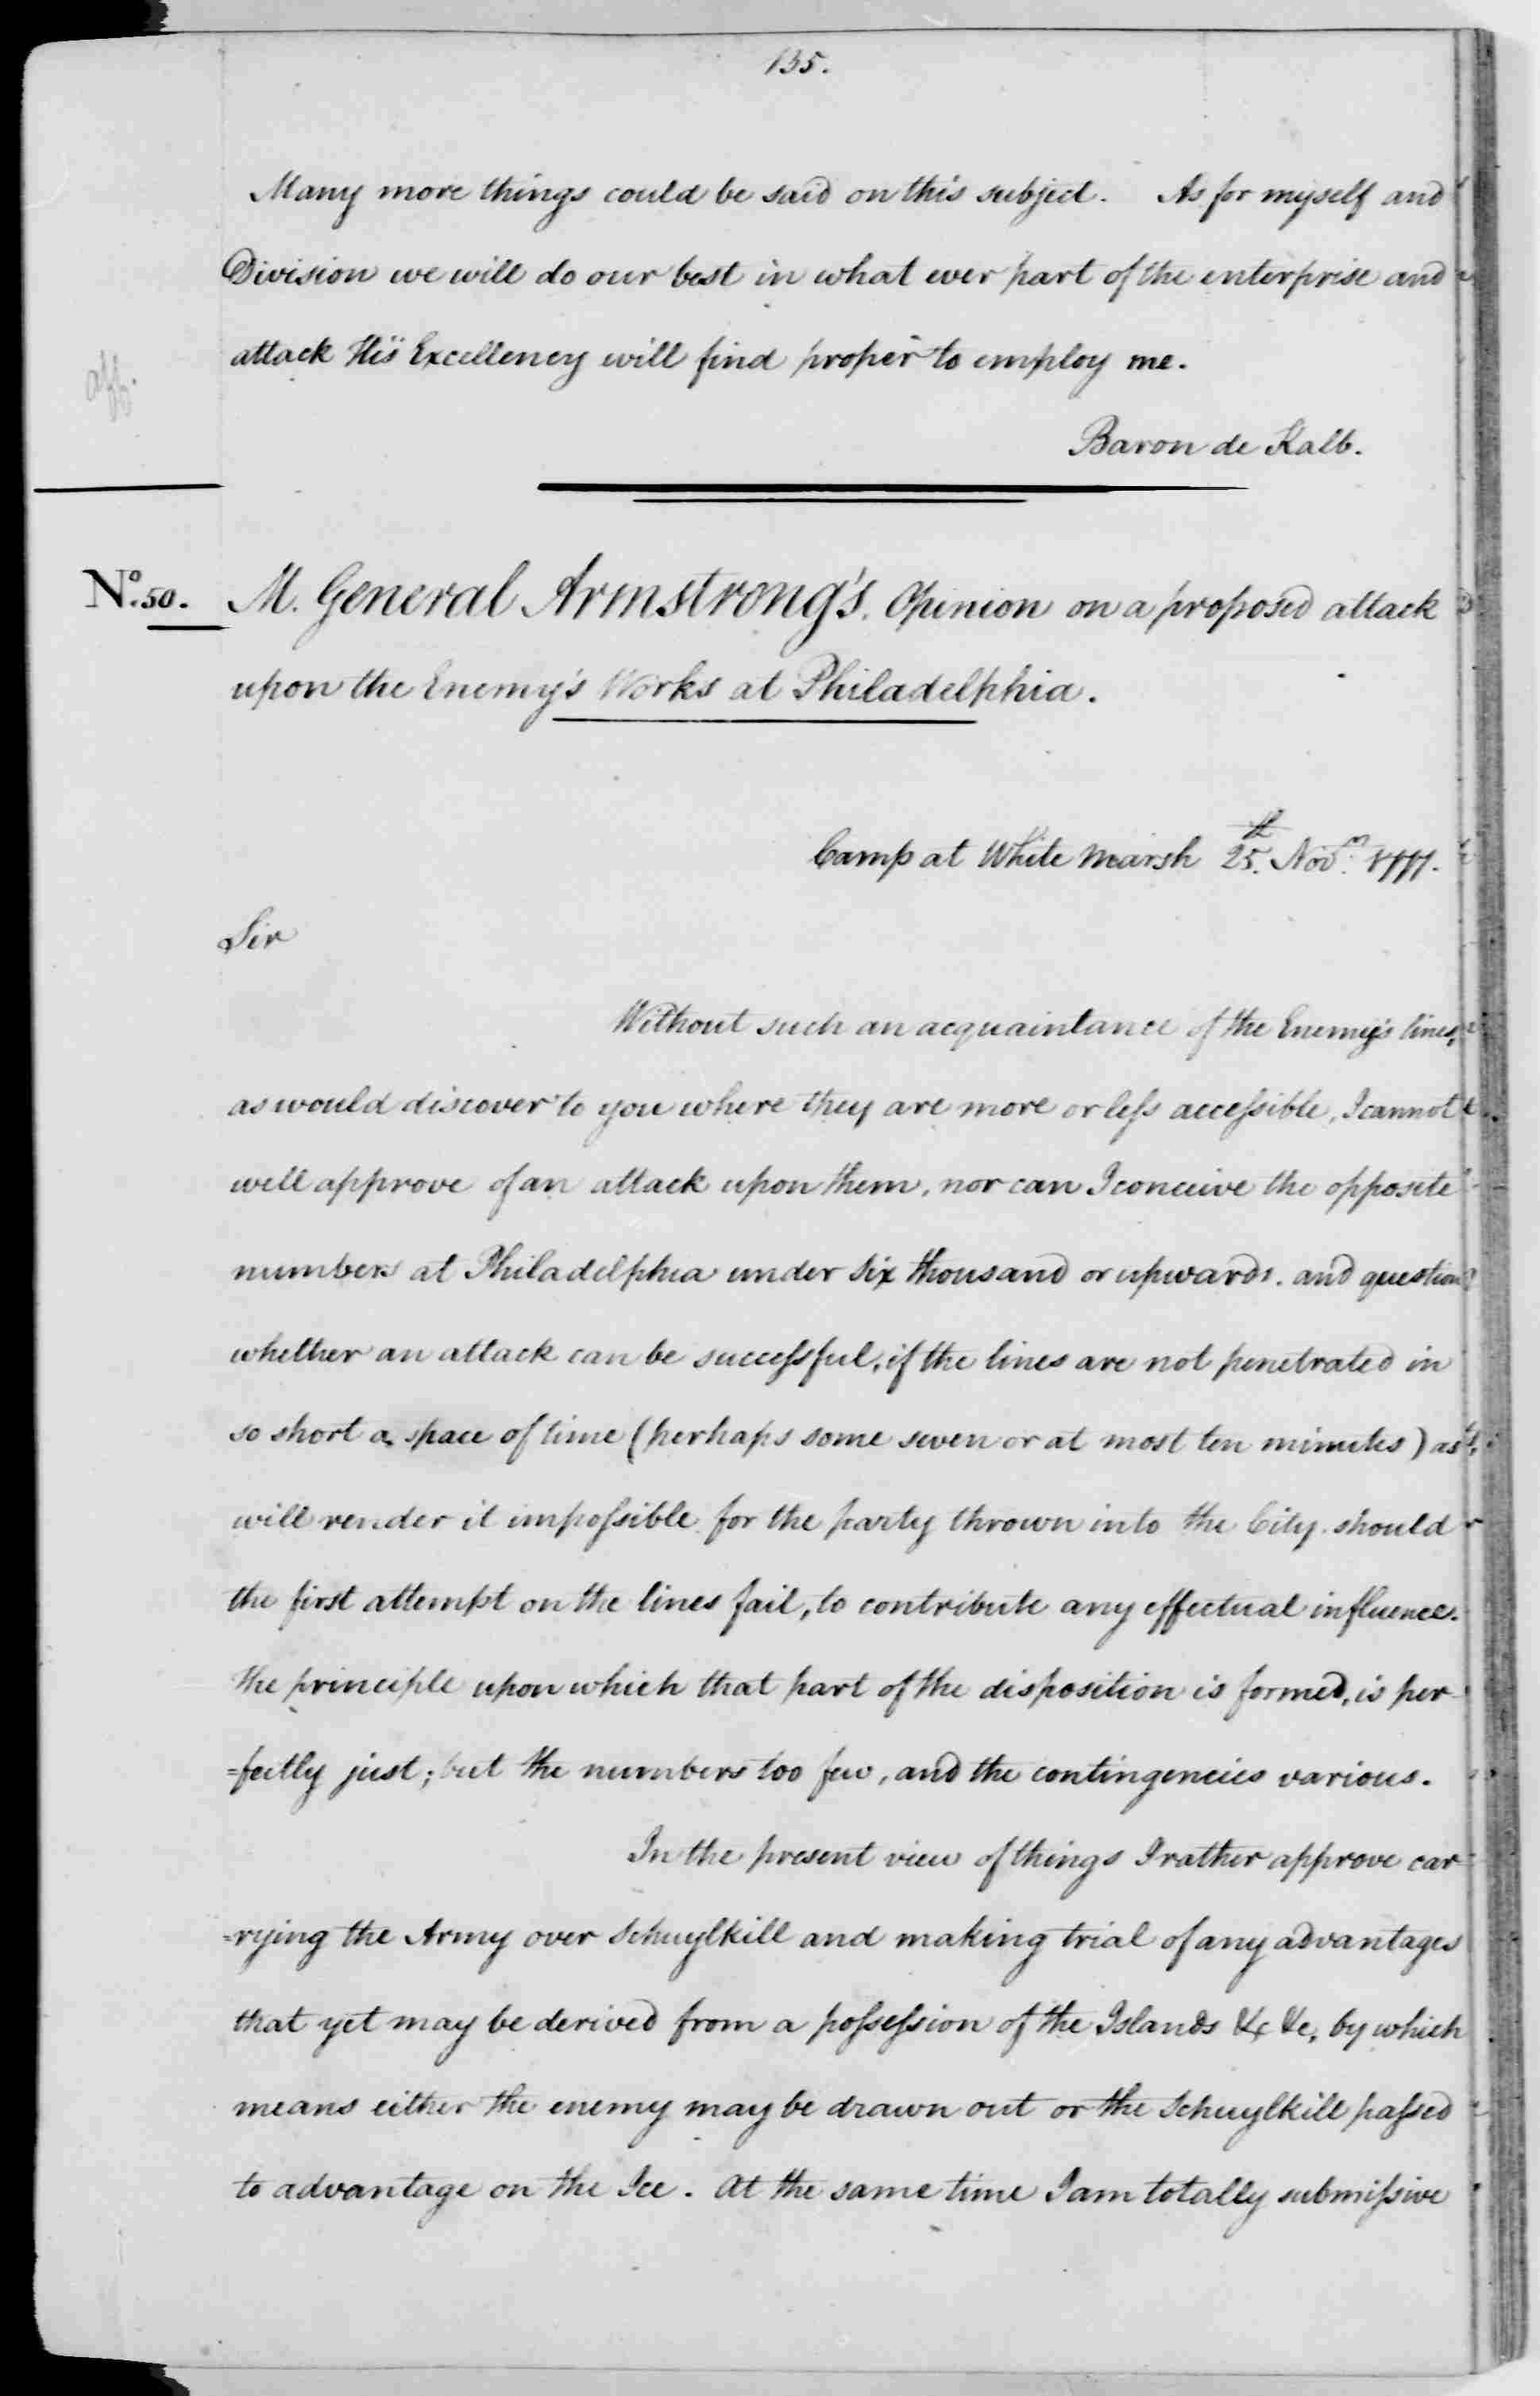 135.
Many more things could be said on this subject. As for myself and
Division we will do our best in what ever part of the enterprise and
attack His Excellency will find proper to employ me.
Baron de Kalb.
No. 50. M. General Armstrong's. Opinion on a proposed attack
upon the Enemy's Works at Philadelphia.
Camp at White Marsh 25th. Novm. 1777.
Sir
Without such an acquaintance of the Enemy's lines,
as would discover to you where they are more or less accessible, I cannot
well approve of an attack upon them, nor can I conceive the opposite
numbers at Philadelphia under six thousand or upwards. and question
whether an attack can be successful, if the lines are not penetrated in
so short a space of time (perhaps some seven or at most ten minutes) as
will render it impossible for the party thrown into the City should
the first attempt on the lines fail, to contribute any effectual influence.
the principle upon which that part of the disposition is formed, is per-
=fectly just; but the numbers too few, and the contingencies various.
In the present view of things I rather approve car-
=rying the Army over Schuylkill and making trial of any advantages
that yet may be derived from a possession of the Islands &c &c, by which
means either the enemy may be drawn out or the Schuylkill passed
to advantage on the Ice. At the same time I am totally submissive